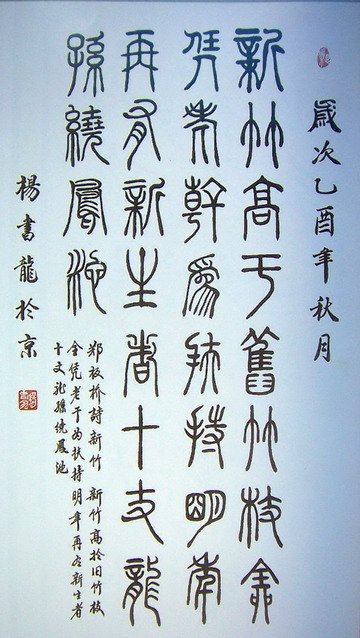 歲次乙酉年秋月
新竹高于舊竹枝全
凭老幹爲扶持明年
再有新生者十丈龍
孫繞鳳池
郑板桥詩新竹 新竹高於旧竹枝
全凭老干为扶持明年再有新生者
十丈龙孫绕凤池
楊書龍於京